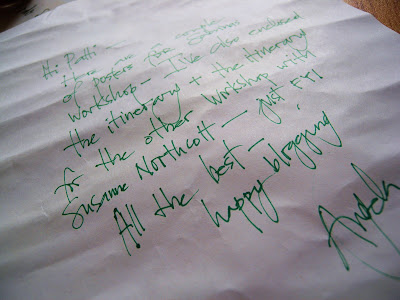 Hi Patti -
Here are a couple
of posters for
workshop - I've also enclosed
the itinerary + the itinerary
for the other workshop with
Susanne Northcott - just FYI
All the best -
happy blogging
Angela